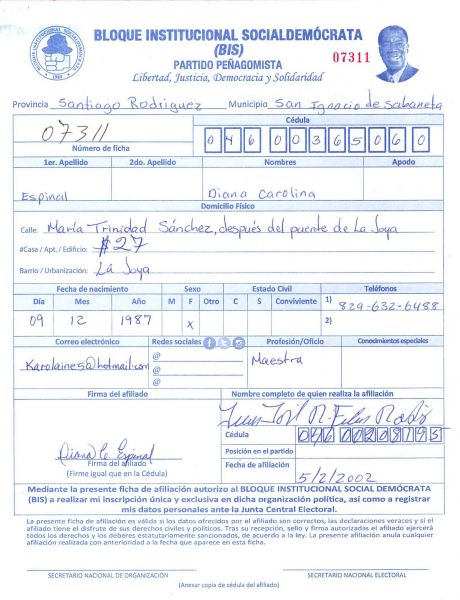 BLOQUE INSTITUCIONAL SOCIALDEMÓCRATA
(BIS)
PARTIDO PEÑAGOMISTA
07311
Libertad, Justicia, Democracia y Solidaridad
Provincia Santiago Rodriguez Municipio San Ignacio de Sabaneta
07311
Número de ficha
Cédula
046 0036506 0
1er. Apellido 2do. Apellido Nombres Apodo
Espinal Diana Carolina
Domicilio Físico
Calle: María Trinidad Sánchez, después del puente de La Joya
#Casa / Apt. / Edificio: #27
Barrio / Urbanización: La Joya
Fecha de nacimiento Sexo Estado Civil Teléfonos
Día Mes Año M F Otro C S Conviviente 1) 829-632-6488
09 12 1987 x 2)
Correo electrónico Redes sociales Profesión/Oficio Conocimientos especiales
Karolaines@hotmail.com @ Maestra
@
@
Firma del afiliado Nombre completo de quien realiza la afiliación
Cédula
Diana C. Espinal
Posición en el partido
Firma del afiliado
(Firme igual que en la Cédula)
Fecha de afiliación
5/2/2002
Mediante la presente ficha de afiliación autorizo al BLOQUE INSTITUCIONAL SOCIAL DEMÓCRATA
(BIS) a realizar mi inscripción única y exclusiva en dicha organización política, así como a registrar
mis datos personales ante la Junta Central Electoral.
La presente ficha de afiliación es válida si los datos ofrecidos por el afiliado son correctos, las declaraciones veraces y si el
afiliado tiene el disfrute de sus derechos civiles y políticos. Tras su recepción, sello y firma autorizados el afiliado ejercerá
todos los derechos y los deberes estatutariamente sancionados, de acuerdo a la ley. La presente afiliación anula cualquier
afiliación realizada con anterioridad a la fecha que aparece en esta ficha.
SECRETARIO NACIONAL DE ORGANIZACIÓN SECRETARIO NACIONAL ELECTORAL
(Anexar copia de cédula del afiliado)